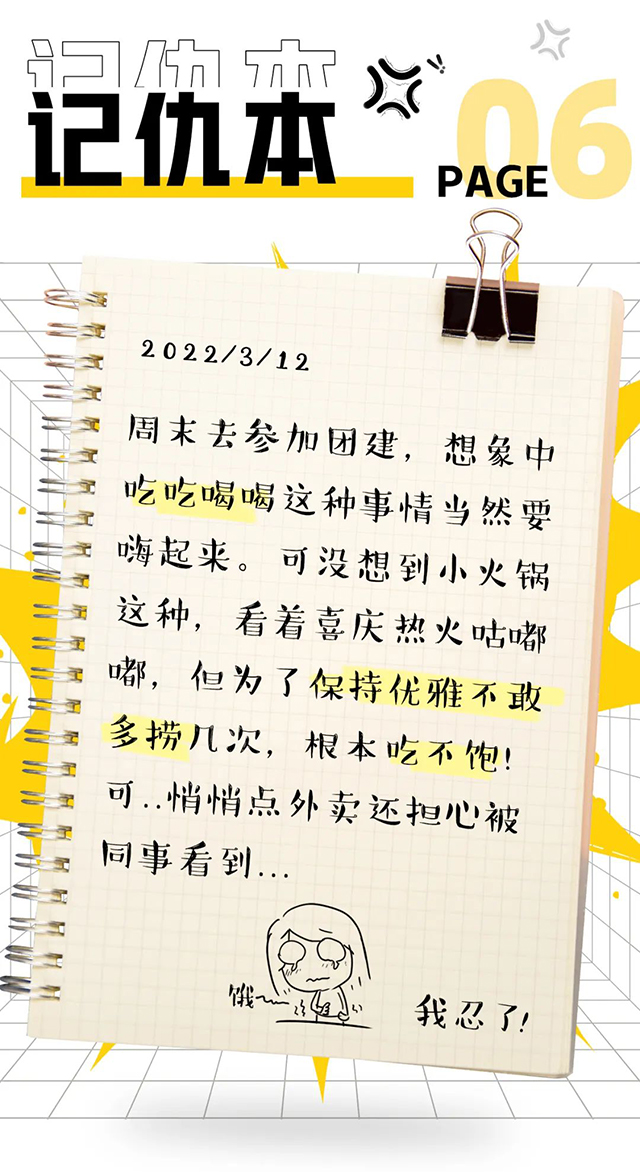 记仇本
记仇本
06
PAGE
2022/3/12
周末去参加团建，想象中
吃吃喝喝这种事情当然要
嗨起来。可没想到小火锅
这种，看着喜庆热火咕嘟
嘟，但为了保持优雅不敢
多捞几次，根本吃不饱!
可..悄悄点外卖还担心被
同事看到...
饿~
我忍了!